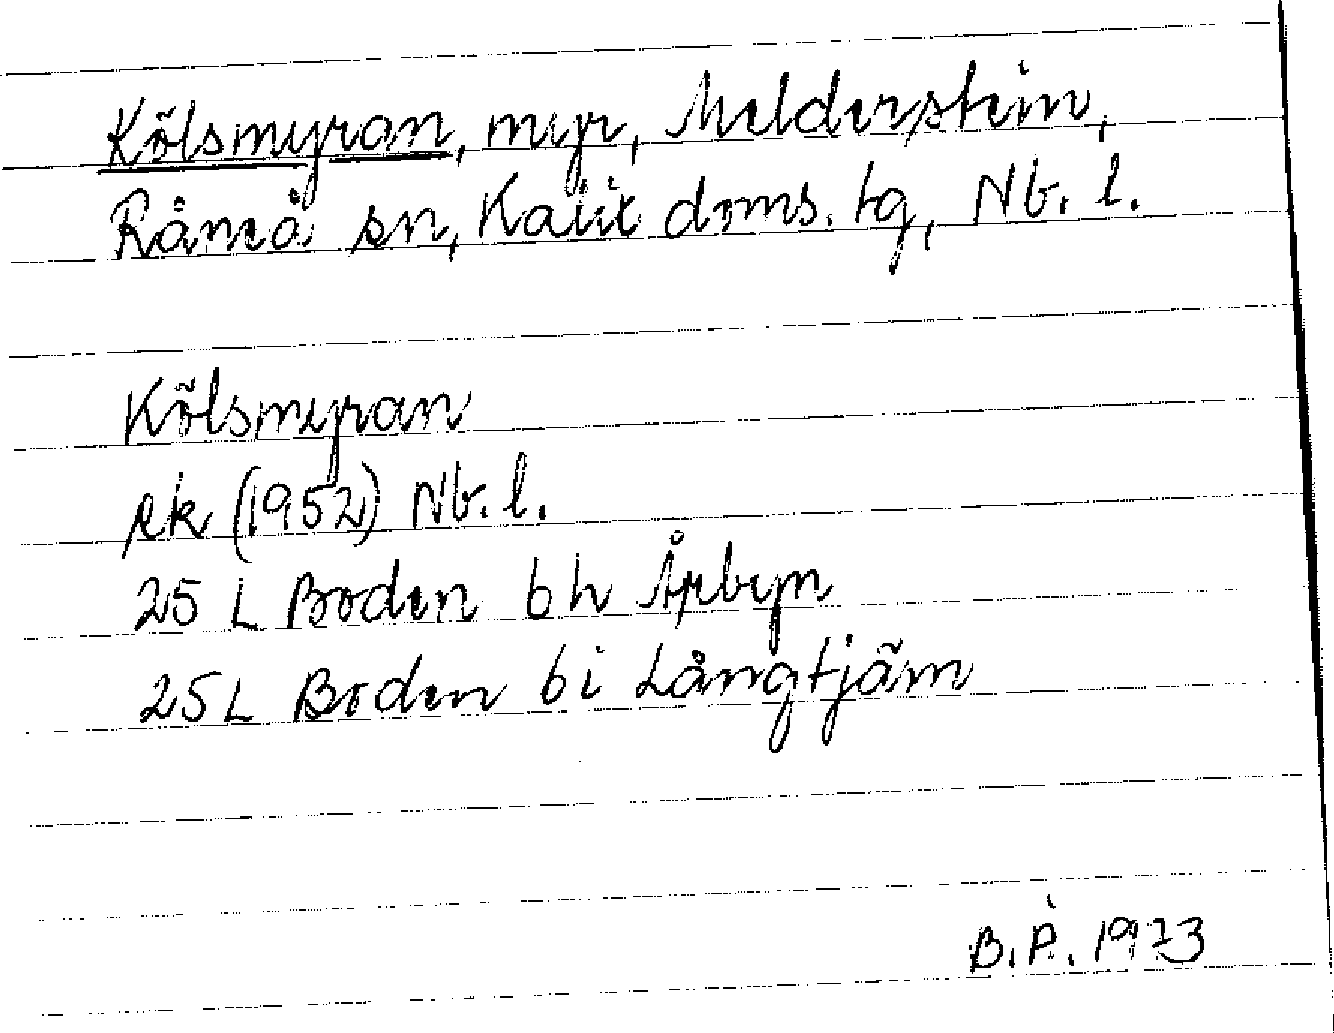 Kölsmyran, myr, Melderstein,
Råneå sn, Kalix doms. tg, Nb. l.
Kölsmyran
ek (1952) Nb. l.
25 L Boden 6h Åpebyn
25 L Boden 6i Långtjärn
B.P. 1973